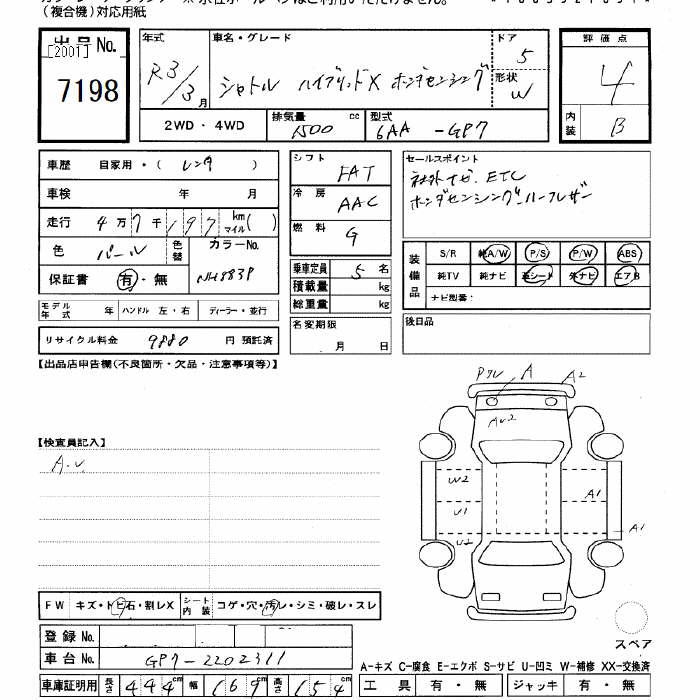 (複合機)対応用紙
出品No.
[2001]
7198
年式
R3/3月
車名・グレード
シャトル ハイブリッドX ホンダセンシング
ドア
5
形状
W
評価点
4
内装
B
2WD・4WD
排気量
1500 cc
型式
6AA-GP7
車歴 自家用・( レンタ )
車検 年 月
走行 4万7千197 km マイル( )
色 パール
色替
カラーNo.
NH883P
保証書 有・無
モデル年式 年
ハンドル 左・右
ディーラー・並行
リサイクル料金 9880 円 預託済
シフト
FAT
冷房
AAC
燃料
G
乗車定員 5 名
積載量 kg
総重量 kg
名変期限
月 日
セールスポイント
社外ナビ. ETC
ホンダセンシング.ハーフレザー
装備品
S/R 純A/W P/S P/W ABS
純TV 純ナビ 革シート 外ナビ エアB
ナビ型番:
後日品
【出品店申告欄(不良箇所・欠品・注意事項等)】
【検査員記入】
A.U.
A
A2
W2
A1
U1
A1
U2
FW キズ・トビ石・割レX
シート内装 コゲ・穴・汚レ・シミ・破レ・スレ
登録No.
車台No. GP7-2202311
車庫証明用 長さ 444cm 幅 169cm 高さ 154cm
スペア
A-キズ C-腐食 E-エクボ S-サビ U-凹ミ W-補修 XX-交換済
工具 有・無 ジャッキ 有・無